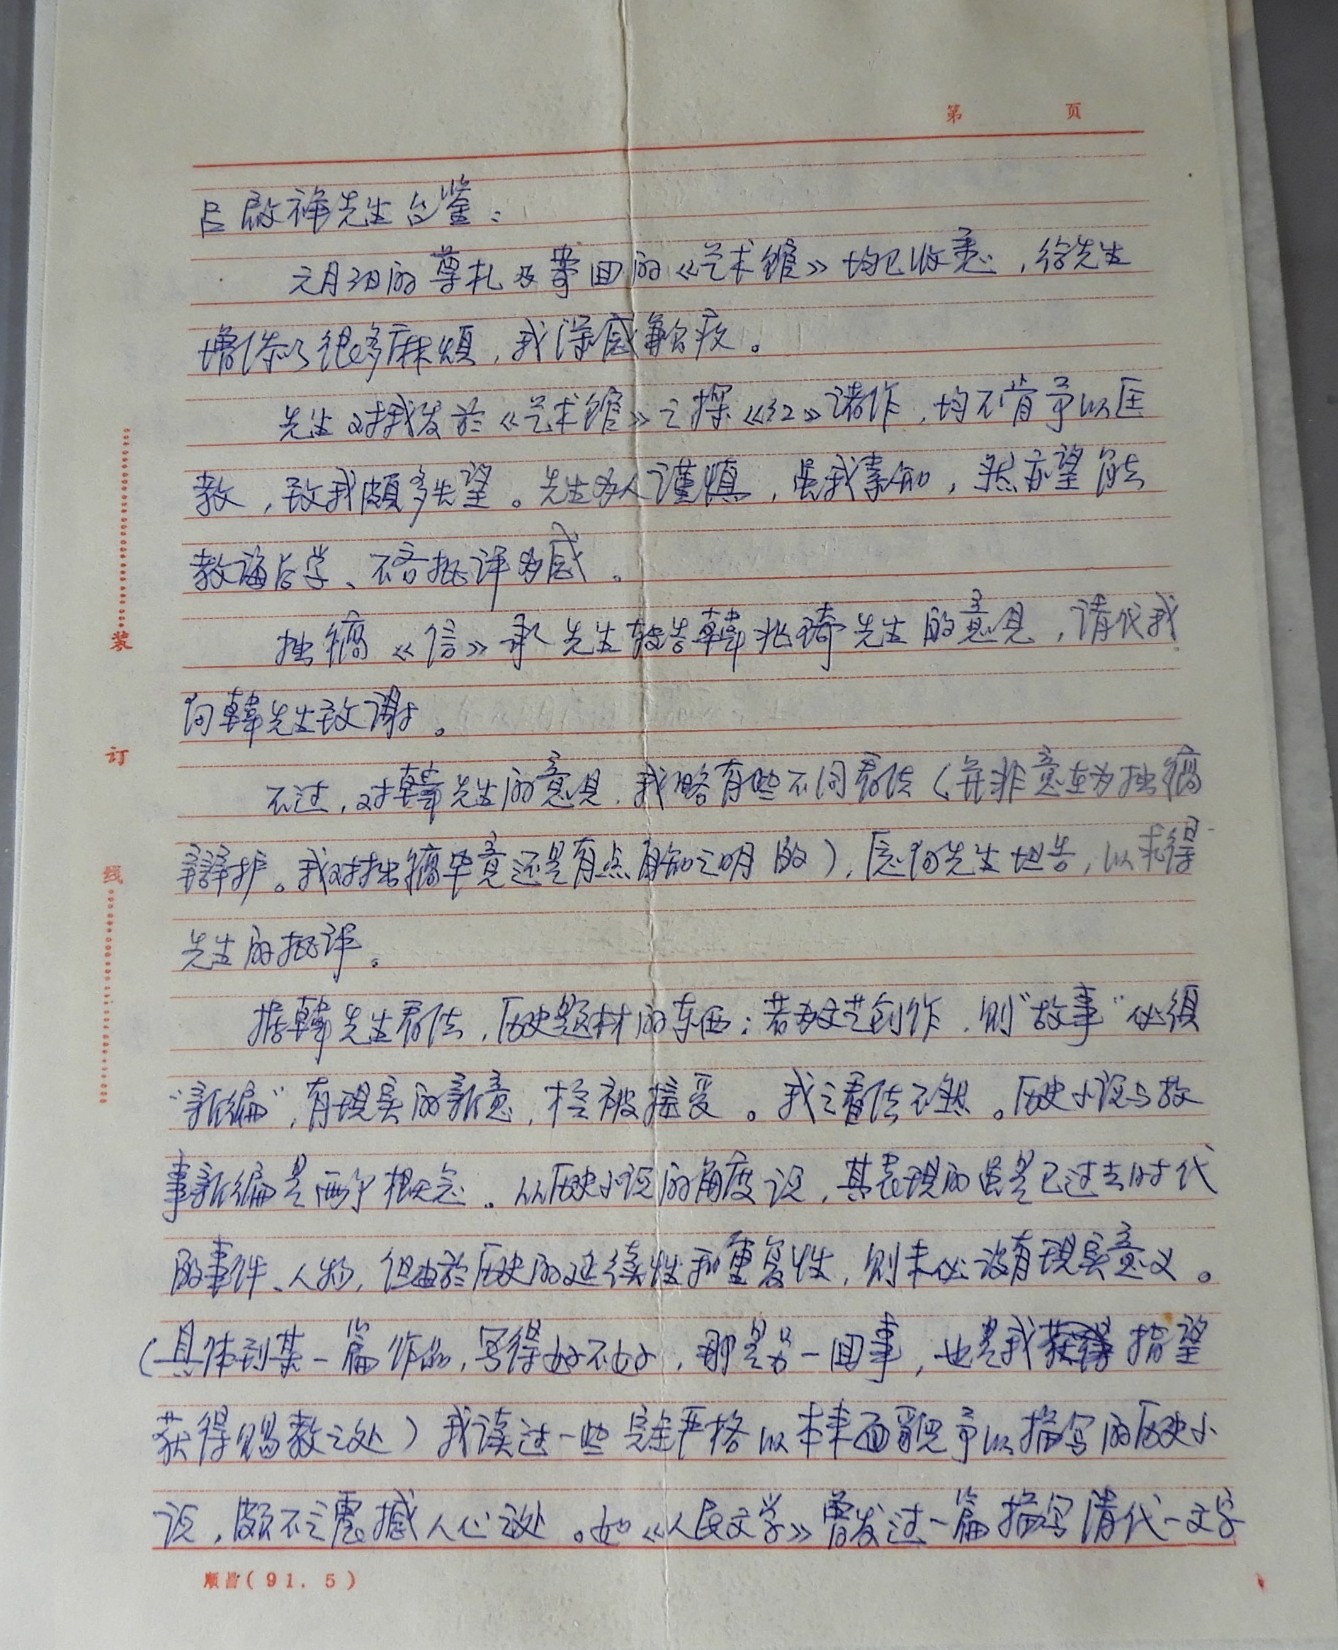 第 页
吕启祥先生台鉴：
元月3日的尊札及寄回的《艺术馆》均已收悉，给先生
增添了很多麻烦，我深感歉疚。
先生对我发於《艺术馆》之探《红》诸作，均不肯予以匡
教，致我颇多失望。先生为人谨慎，虽我素知，然亦望能
教诲后学、不吝批评为感。
拙稿《信》承先生转告韩兆琦先生的意见，请代我
向韩先生致谢。
不过，对韩先生的意见，我略有些不同看法（并非意在为拙稿
辩护。我对拙稿毕竟还是有点自知之明的），愿向先生坦告，以求得
先生的批评。
据韩先生看法，历史题材的东西；若为文艺创作，则“故事”必须
“新编”，有现实的新意，才被接受。我之看法不然。历史小说与故
事新编是两个概念。从历史小说的角度说，其表现的虽是已过去时代
的事件、人物，但由於历史的延续性和重复性，则未必没有现实意义。
（具体到某一篇作品，写得好不好，那是另一回事，也是我指望
获得赐教之处）我读过一些完全严格以本来面貌予以描写的历史小
说，颇不乏震撼人心之处。如《人民文学》曾发过一篇描写清代一文字
装
订
线
顺昌(91.5)